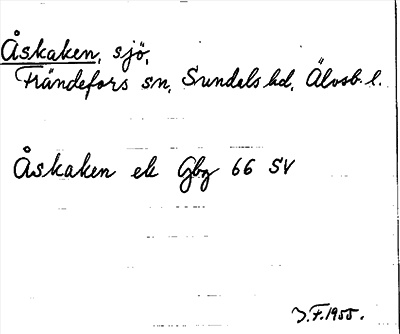 Åskaken, sjö,
Frändefors sn, Sundals hd, Älvsb. l.
Åskaken ek Gbg 66 SV
J.F. 1955.